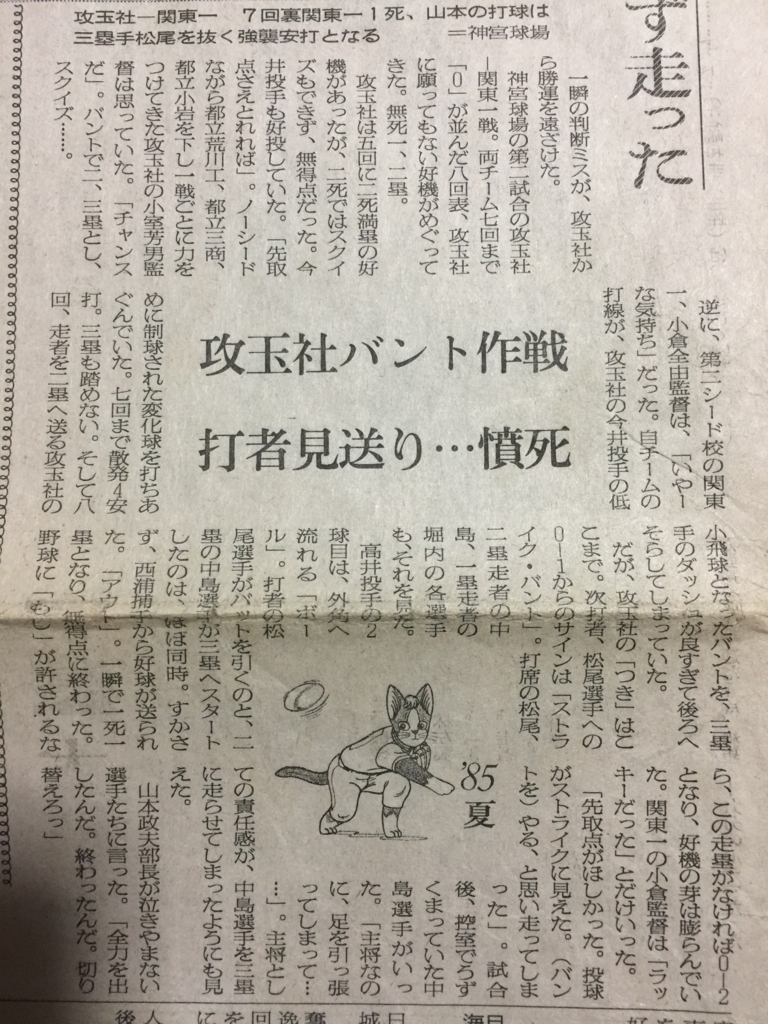 攻玉社―関東一　7回裏関東一1死、山本の打球は
三塁手松尾を抜く強襲安打となる　＝神宮球場
ず走った
一瞬の判断ミスが、攻玉社か
ら勝運を遠ざけた。
神宮球場の第二試合の攻玉社
―関東一戦。両チーム七回まで
「0」が並んだ八回表、攻玉社
に願ってもない好機がめぐって
きた。無死一、二塁。
攻玉社は五回に二死満塁の好
機があったが、二死ではスクイ
ズもできず、無得点だった。今
井投手も好投していた。「先取
点さえとれれば」。ノーシード
ながら都立荒川工、都立三商、
都立小岩を下し一戦ごとに力を
つけてきた攻玉社の小室芳男監
督は思っていた。「チャンス
だ」。バントで二、三塁とし、
スクイズ……。
攻玉社バント作戦
打者見送り…憤死
逆に、第二シード校の関東
一、小倉全由監督は、「いやー
な気持ち」だった。自チームの
打線が、攻玉社の今井投手の低
めに制球された変化球を打ちあ
ぐんでいた。七回まで散発4安
打。三塁も踏めない。そして八
回、走者を二塁へ送る攻玉社の
小飛球となったバントを、三塁
手のダッシュが良すぎて後ろへ
そらしてしまっていた。
だが、攻玉社の「つき」はこ
こまで。次打者、松尾選手への
0―1からのサインは「ストラ
イク・バント」。打席の松尾、
二塁走者の中
島、一塁走者の
堀内の各選手
も、それを見た。
高井投手の2
球目は、外角へ
流れる「ボー
ル」。打者の松
尾選手がバットを引くのと、二
塁の中島選手が三塁へスタート
したのは、ほぼ同時。すかさ
ず、西浦捕手から好球が送られ
た。「アウト」。一瞬で一死一
塁となり、無得点に終わった。
野球に「もし」が許されるな
ら、この走塁がなければ0―2
となり、好機の芽は膨らんでい
た。関東一の小倉監督は「ラッ
キーだった」とだけいった。
「先取点がほしかった。投球
がストライクに見えた。（バン
トを）やる、と思い走ってしま
った」。試合
後、控室でうず
くまっていた中
島選手がいっ
た。「主将なの
に、足を引っ張
ってしまって…
…」。主将とし
ての責任感が、中島選手を三塁
に走らせてしまったようにも見
えた。
山本政夫部長が泣きやまない
選手たちに言った。「全力を出
したんだ。終わったんだ。切り
替えろっ」
'85
夏